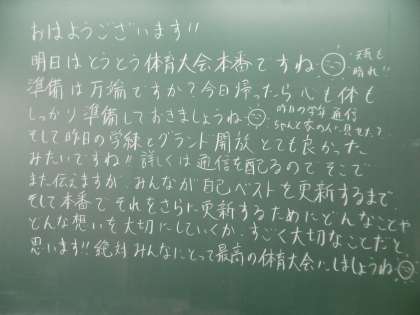 おはようございます!!
明日はとうとう体育大会本番ですね 天気も晴れ!!
準備は万端ですか?今日帰ったら心も体も
しっかり準備しておきましょうね 昨日の学年通信ちゃんと家の人に見せた?
そして昨日の学練とグランド開放とても良かった
みたいですね!!詳しくは通信を配るのでそこで
また伝えますが、みんなが自己ベストを更新するまで
そして本番でそれをさらに更新するためにどんなことや
どんな想いを大切にしていくか、すごく大切なことだと
思います!!絶対みんなにとって最高の体育大会にしましょうね